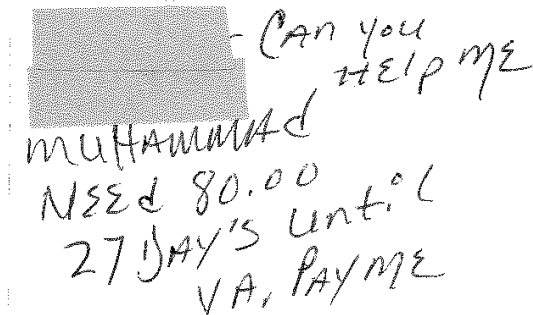 - CAN YOU
HELP ME
MUHAMMAd
NEEd 80.00
27 DAY'S UNtil
VA, PAY ME